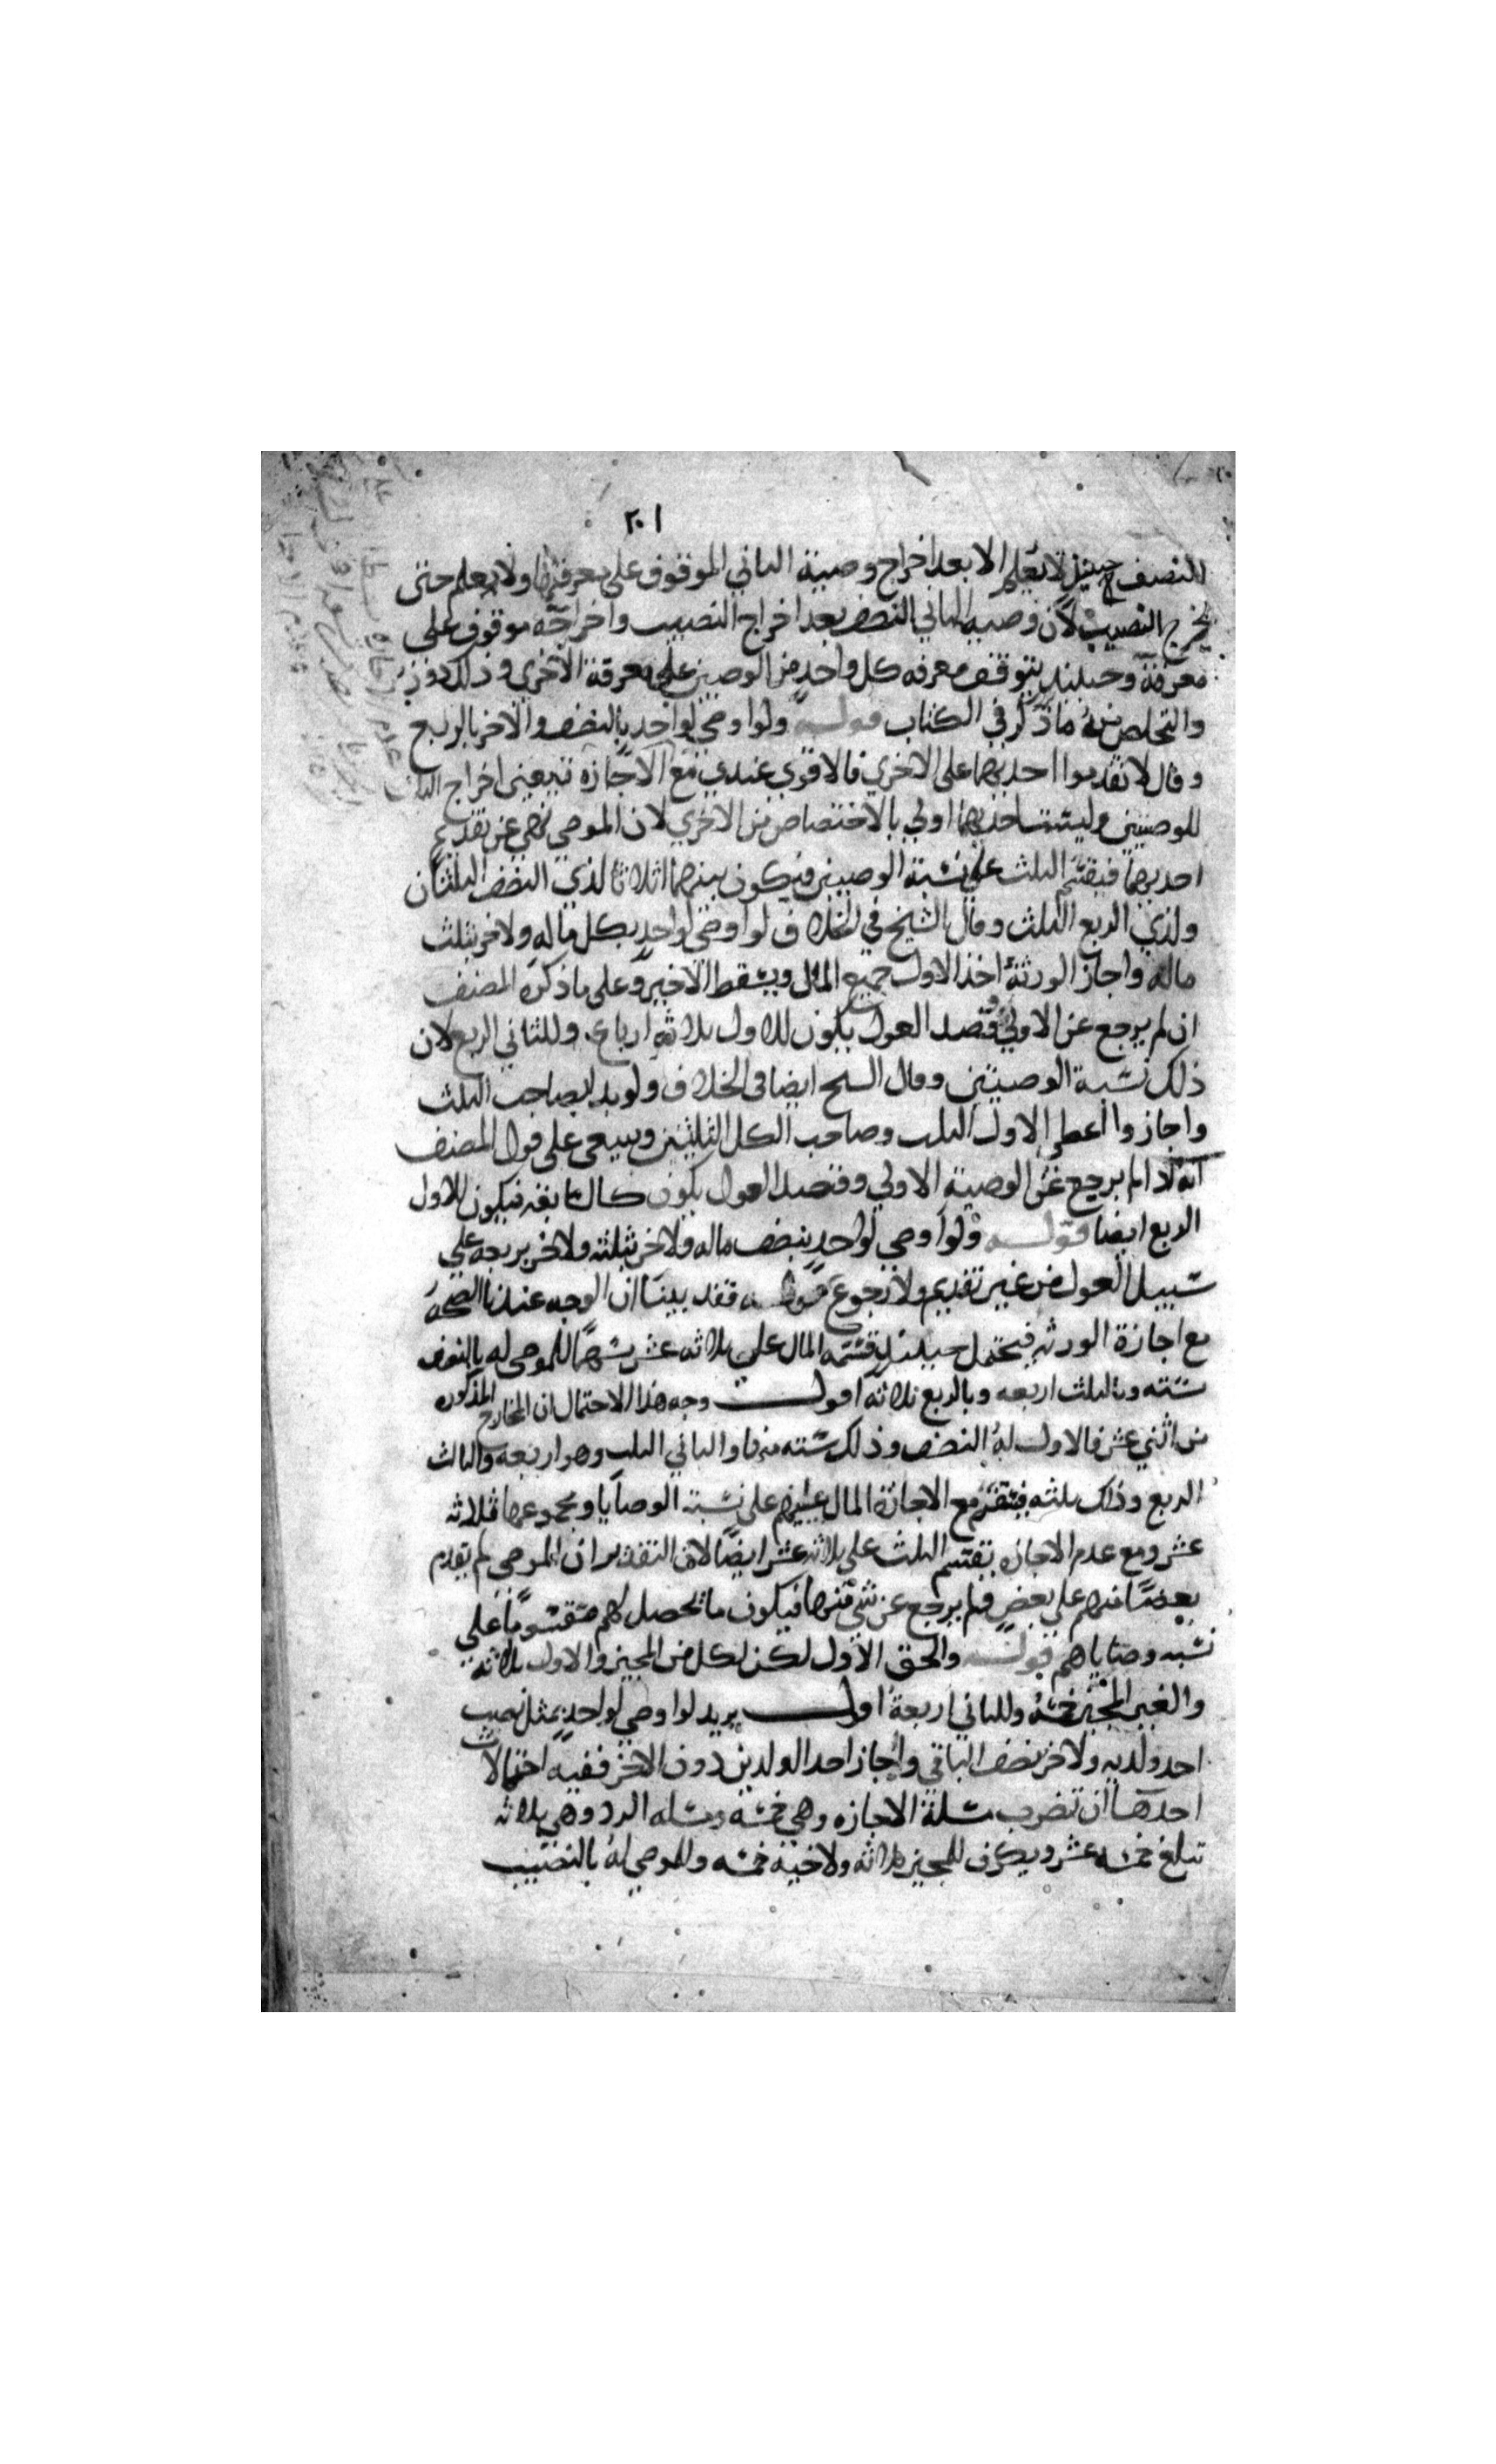 ٢٠١
النصف حينئذ لا يعلم الا بعد اخراج وصية الثاني الموقوف على معرفتها ولا يعلم حتى
يخرج النصيب لان وصيه الثاني النصف بعد اخراج النصيب واخراجه موقوف على
معرفته وحينئذ يتوقف معرفه كل واحد من الوصيتين على معرفة الاخري وذلك دور
والتخلص منه ما ذكر في الكتاب قوله ولو اوصى لواحد بالنصف والاخر بالربع
وقال لا تقدموا احديهما على الاخري فالاقوي عندي مع الاجازه
للوصيتين وليست احديهما اولي بالاختصاص من الاخري لان الموصي نهي عن تقديم
احديهما فيقسم الثلث على نسبة الوصيتين فيكون بينهما اثلاثا لذي النصف الثلثان
ولذي الربع الثلث وقال الشيخ في الخلاف لو اوصى لواحد بكل ماله ولاخر بثلث
ماله واجاز الورثة اخذ الاول جميع المال ويسقط الاخير وعلى ما ذكره المصنف
ان لم يرجع عن الاولي وقصد العول يكون للاول ثلاثة ارباع وللثاني الربع لان
ذلك نسبة الوصيتين وقال الشيخ ايضا في الخلاف ولو بدا بصاحب الثلث
واجازوا اعطي الاول الثلث وصاحب الكل الثلثين وينبغي على قول المصنف
انه اذا لم يرجع عن الوصية الاولي وقصد العول يكون كالسابقه فيكون للاول
الربع ايضا قوله ولو اوصي لواحد بنصف ماله ولاخر بثلثه ولاخر بربعه على
سبيل العول من غير تقديم ولا رجوع قوله فقد بينا ان الوجه عندنا الصحه
مع اجازة الورثه فيحتمل حينئذ قسمه المال على ثلاثه عشر سهما للموصى له بالنصف
سته وبالثلث اربعه وبالربع ثلاثه اقول وجه هذا الاحتمال ان المخارج المذكوره
من اثني عشر فالاول له النصف وذلك سته منها والثاني الثلث وهو اربعه والثالث
الربع وذلك ثلثه فيقسم مع الاجازة المال عليهم على نسبة الوصايا ومجموعها ثلاثه
عشر ومع عدم الاجازه يقسم الثلث على ثلاثه عشر ايضا لان التقدير ان الموصي لم يقدم
بعضا منهم على بعض فلم يرجع عن شي منها فيكون ما يحصل لهم مقسوما على
نسبه وصاياهم قوله والحق الاول لكن لكل من المجيز والاول ثلاثه
والغير المجيز خمسه وللثاني اربعة اقول يريد لو اوصي لواحد بمثل نصيب
احد ولديه ولاخر بنصف الباقي واجاز احد الولدين دون الاخر ففيه احتمالات
احدها ان تضرب مسلة الاجازه وهي خمسة ومسله الرد وهي ثلاثه
تبلغ خمسه عشر ويكون للمجيز ثلاثه ولاخيه خمسه وللموصي له بالنصيب